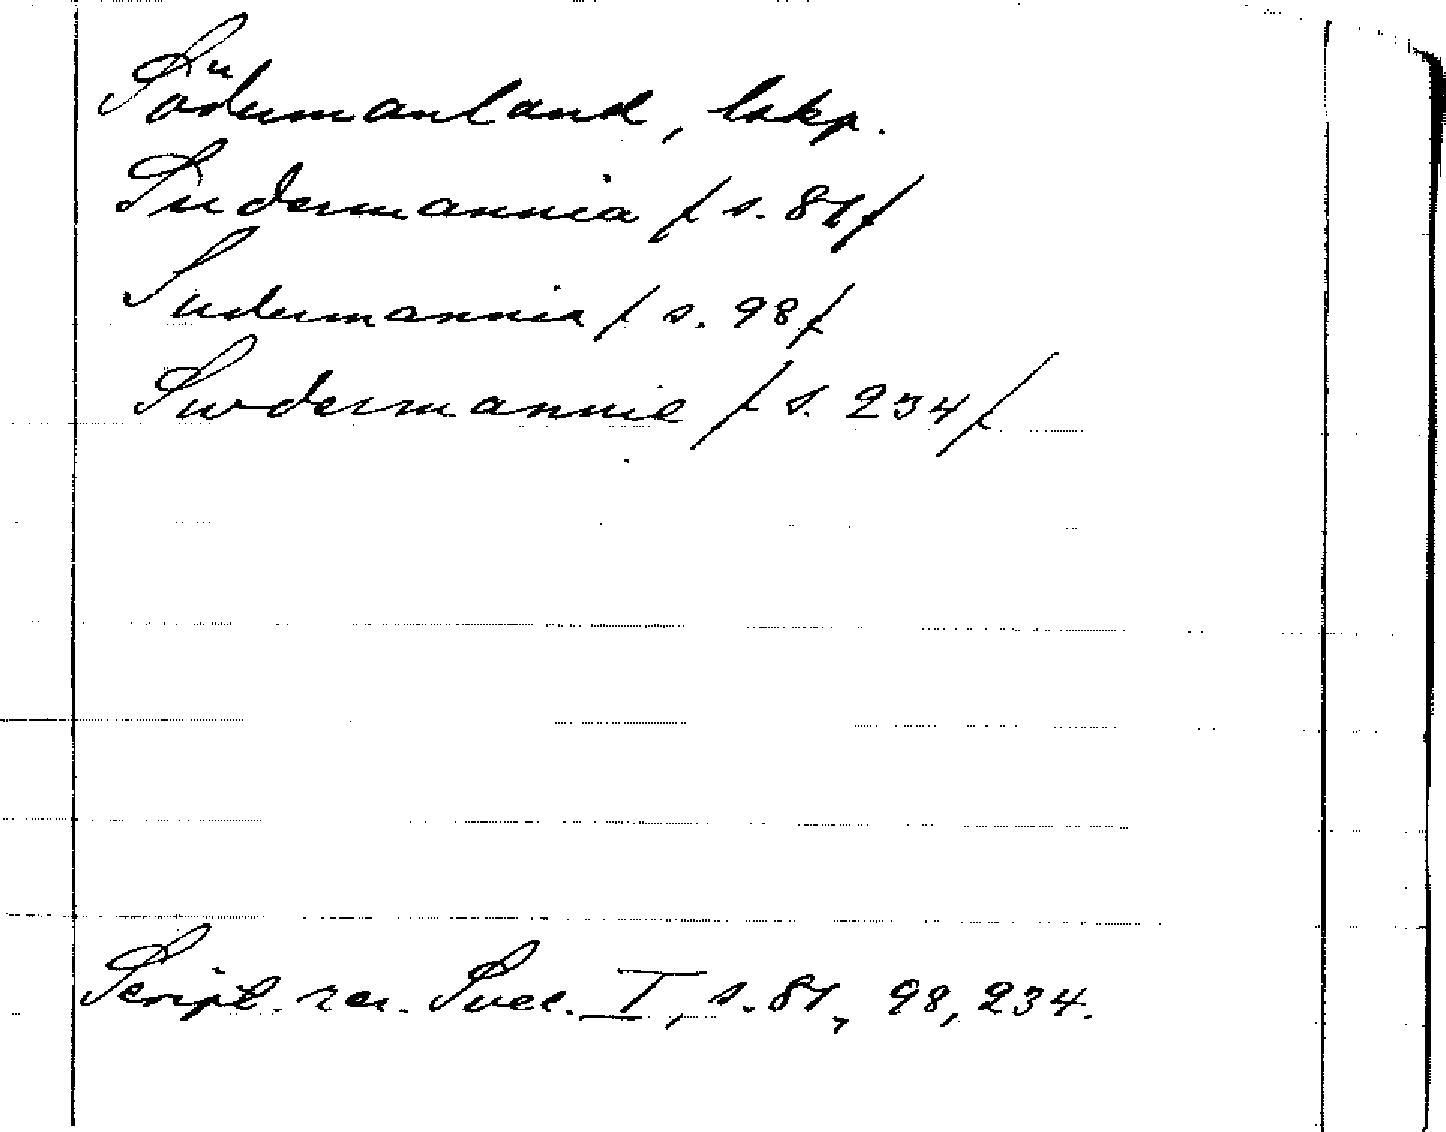 Södermanland, lskp.
Sudermannia / s. 87 /
Sudermannia / s. 98 /
Swdermannie / s. 234 /
Script. rer. Svec. I, s. 87, 98, 234.